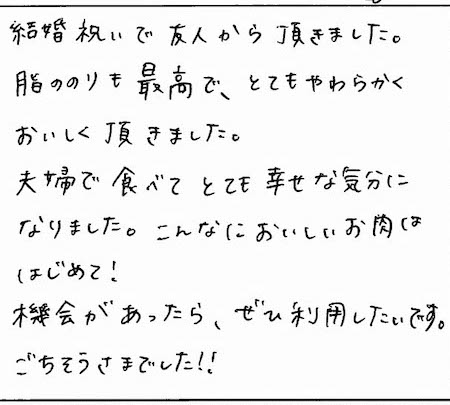 結婚祝いで友人から頂きました。
脂ののりも最高で、とてもやわらかく
おいしく頂きました。
夫婦で食べてとても幸せな気分に
なりました。こんなにおいしいお肉は
はじめて！
機会があったら、ぜひ利用したいです。
ごちそうさまでした!!